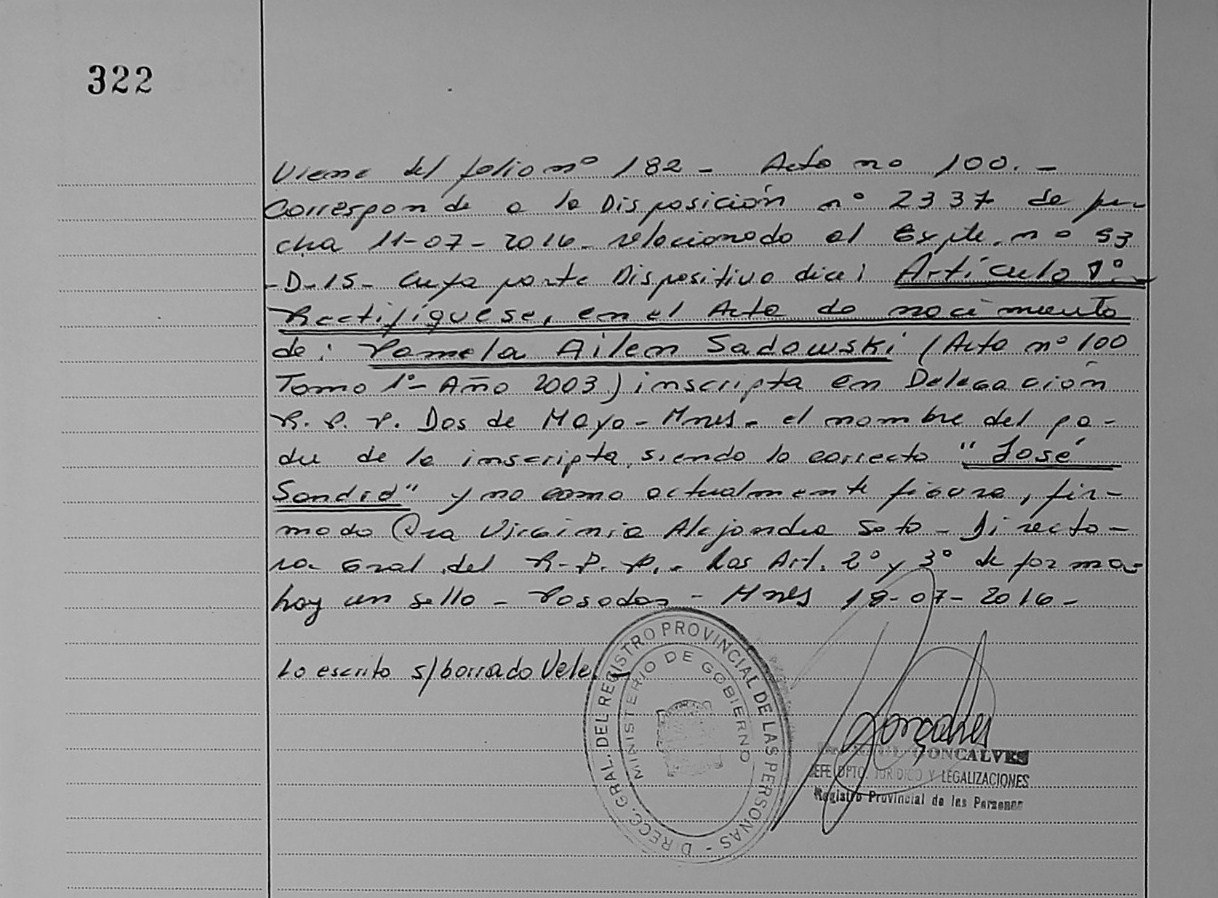 322
Viene del folio nº 182 - Acta no 100. -
Corresponde a la Disposición nº 2337 de fe-
cha 11-07-2016 - relacionado al Expte. nº 53
-D-15- cuya parte Dispositiva dice: Artículo 1º-
Rectifíquese, en el Acta de nacimiento
de: Pamela Ailem Sadowski (Acta nº 100
Tomo 1º- Año 2003.) inscripta en Delegación
R. P. P. Dos de Mayo - Mnes. - el nombre del pa-
dre de la inscripta, siendo lo correcto "José
Sandro" y no como actualmente figura, fir-
mado Dra Virginia Alejandra Soto - Directo-
ra Gral del R.P.P. - Los Art. 2º y 3º de forma-
hay un sello - Posadas - Mnes 18-07-2016 -
Lo escrito s/borrado Vale -
DIRECC. GRAL. DEL REGISTRO PROVINCIAL DE LAS PERSONAS -
MINISTERIO DE GOBIERNO
GONCALVES
JEFE DPTO. JURIDICO Y LEGALIZACIONES
Registro Provincial de las Personas